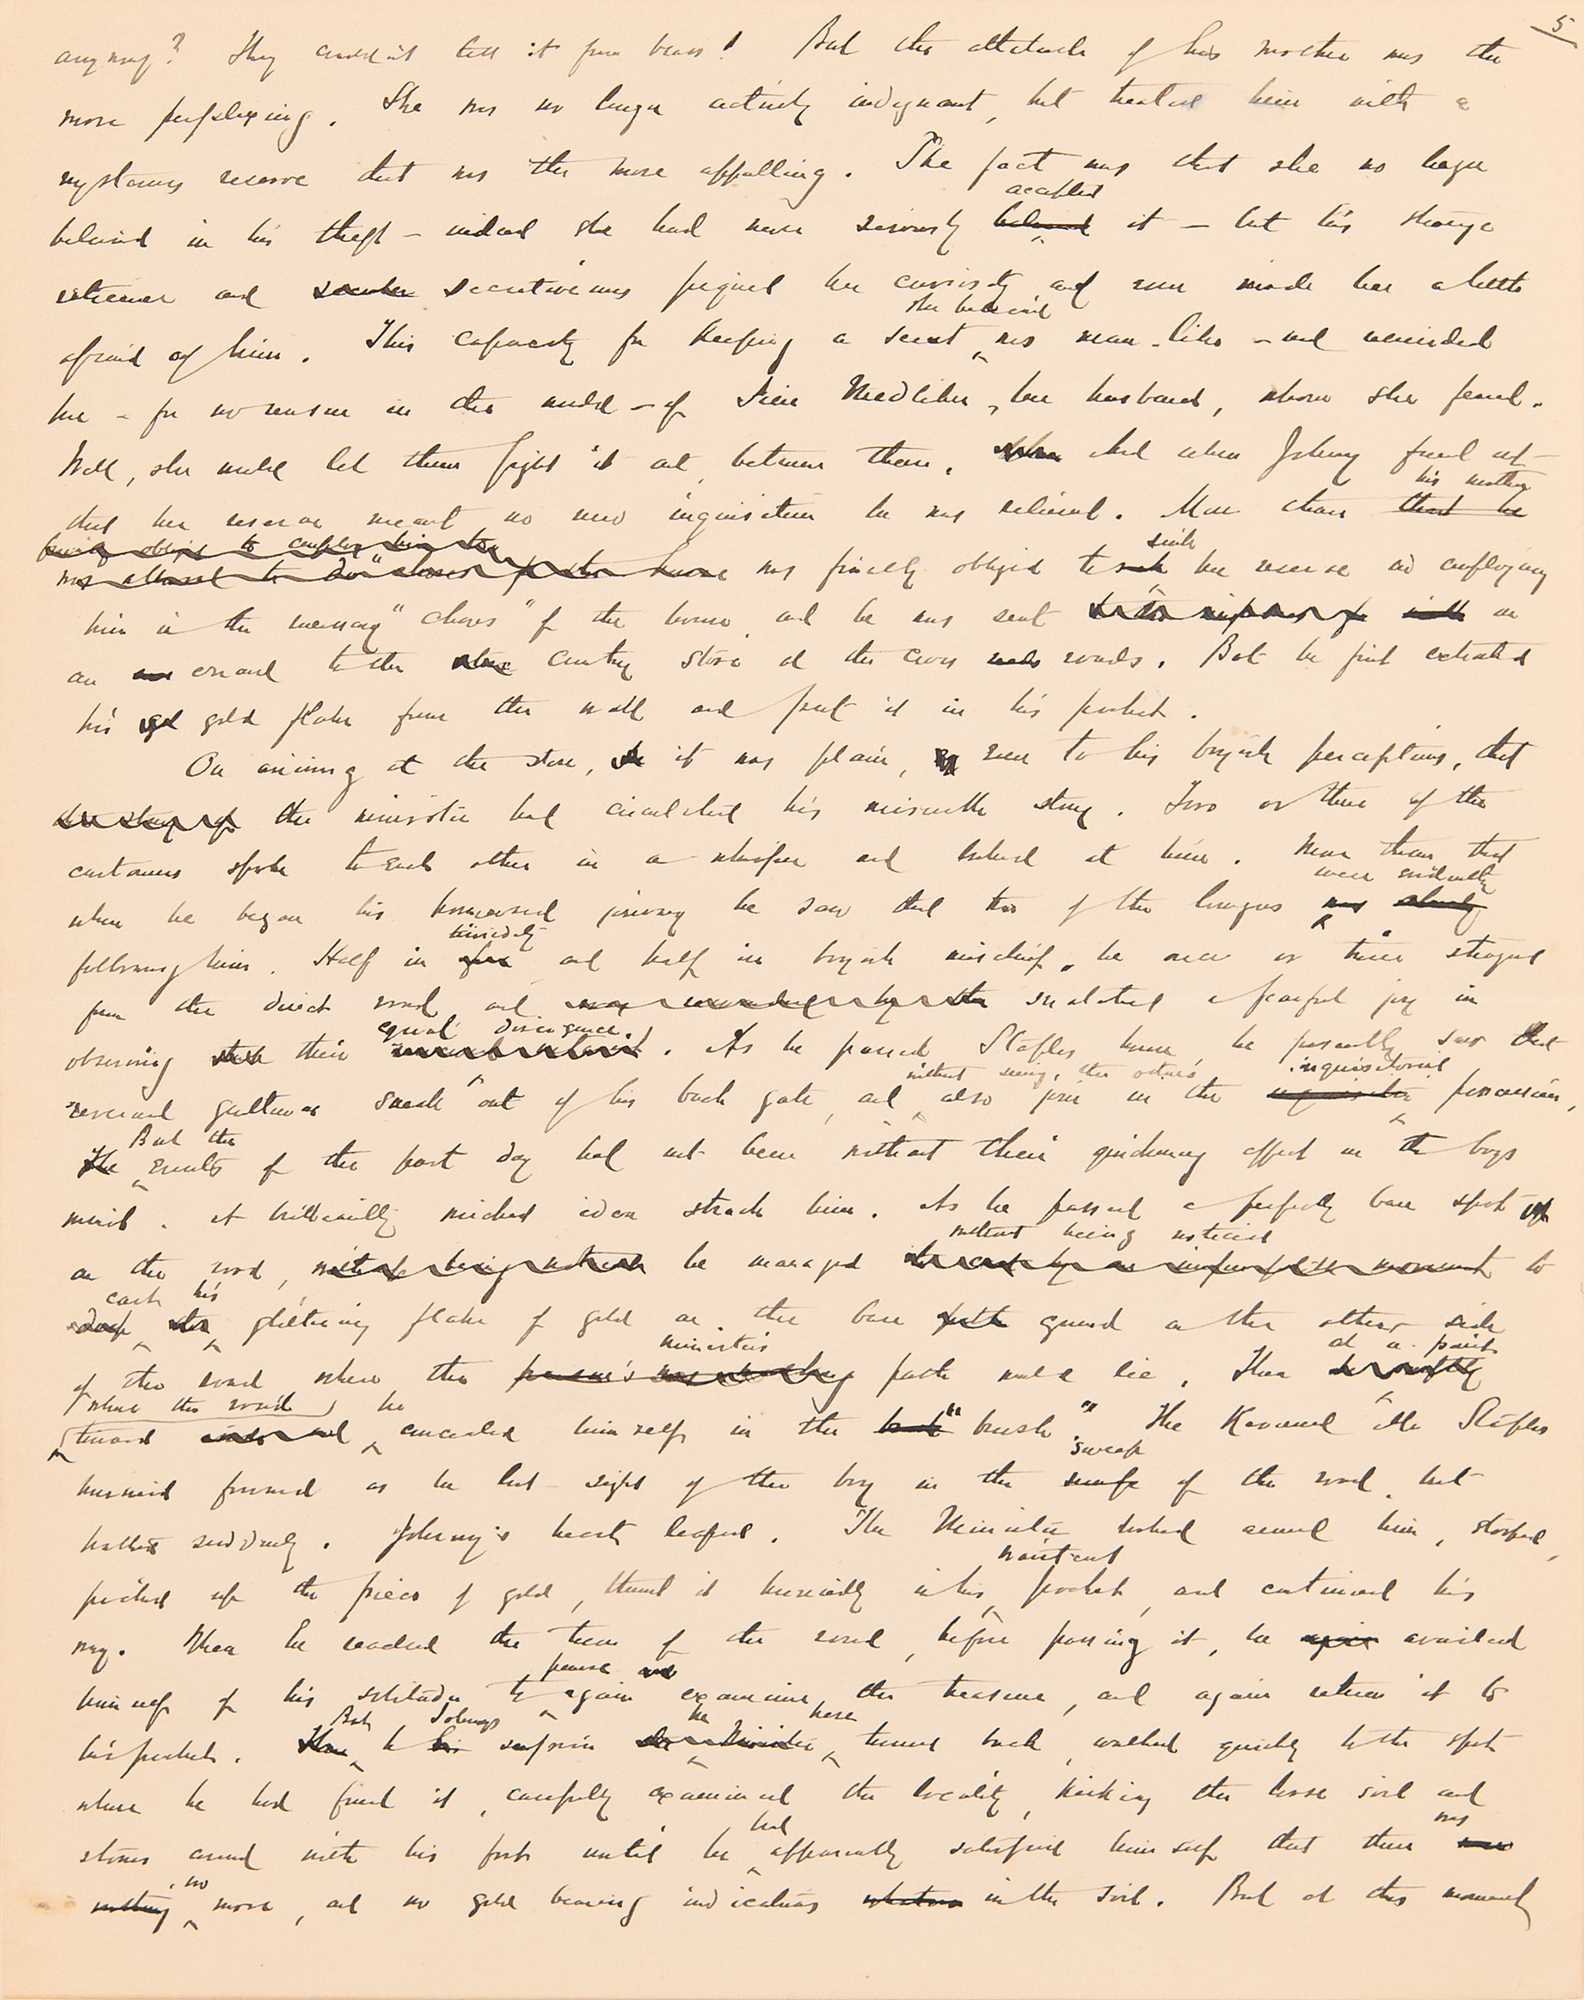 5
anyway? They couldn't tell it from brass! But the attitude of his mother was the
more perplexing. She was no longer actively indignant, but treated him with a
mysterious reserve that was the more appalling. The fact was that she no longer
accepted
believed in his theft – indeed she had never seriously believed it – but his strange
reticence and secretiveness piqued her curiosity and even made her a little
she believed
afraid of him. This capacity for keeping a secret was man-like – and reminded
her – for no reason in the world – of Jim Medliker, her husband, whom she feared.
Well, she would let them fight it out between them. when And when Johnny found out
his mother
that her reserve meant no new inquisition he was relieved. More than that he
being obliged to employ him too
was allowed to do "chores" for the house was finally obliged to sink her reserve in employing
sink
him in the necessary "chores" of the house, and he was sent on
an errand to the country store at the cross roads. But he first extracted
his gold flake from the wall and put it in his pocket.
On arriving at the store, it was plain, even to his boyish perceptions, that
the story of the minister had circulated his miserable story. Two or three of the
customers spoke to each other in a whisper and looked at him. More than that
were evidently
when he began his homeward journey he saw that two of the loungers was already
timidity
following him. Half in fear and half in boyish mischief, he once or twice strayed
from the direct road, and snatched a fearful joy in
equal divergence.
observing their . As he passed Staples house, he presently saw that
without seeing the others inquisitorial
reverend gentleman sneak out of his back gate, and also join in the inquisition procession.
But the
The events of the past day had not been without their quickening effect on the boys
mind. A brilliantly wicked idea struck him. As he passed a perfectly bare spot
without being noticed
on the road, without being noticed he managed to
cast his
drop the glittering flake of gold on the bare path ground on the other side
minister's at a point
of the road where the parson's path would lie. Then
where the road he
turned concealed himself in the "brush". The Reverend Mr Staples
sweep
hurried forward as he lost sight of the boy in the sweep of the road, but
halted suddenly. Johnny's heart leaped. The Minister looked around him, stooped,
waistcoat
picked up the piece of gold, thrust it hurriedly in his pocket, and continued his
way. When he reached the turn of the road, before passing it, he again availed
pause and
himself of his solitude to again examine the treasure, and again return it to
But Johnny's he here
his pocket. Then to his surprise the Minister turned back, walked quickly to the spot
where he had found it, carefully examined the locality, kicking the loose soil and
had was
stones around with his foot until he apparently satisfied himself that there was
no
nothing more, and no gold bearing indications whatever in the soil. But at this moment